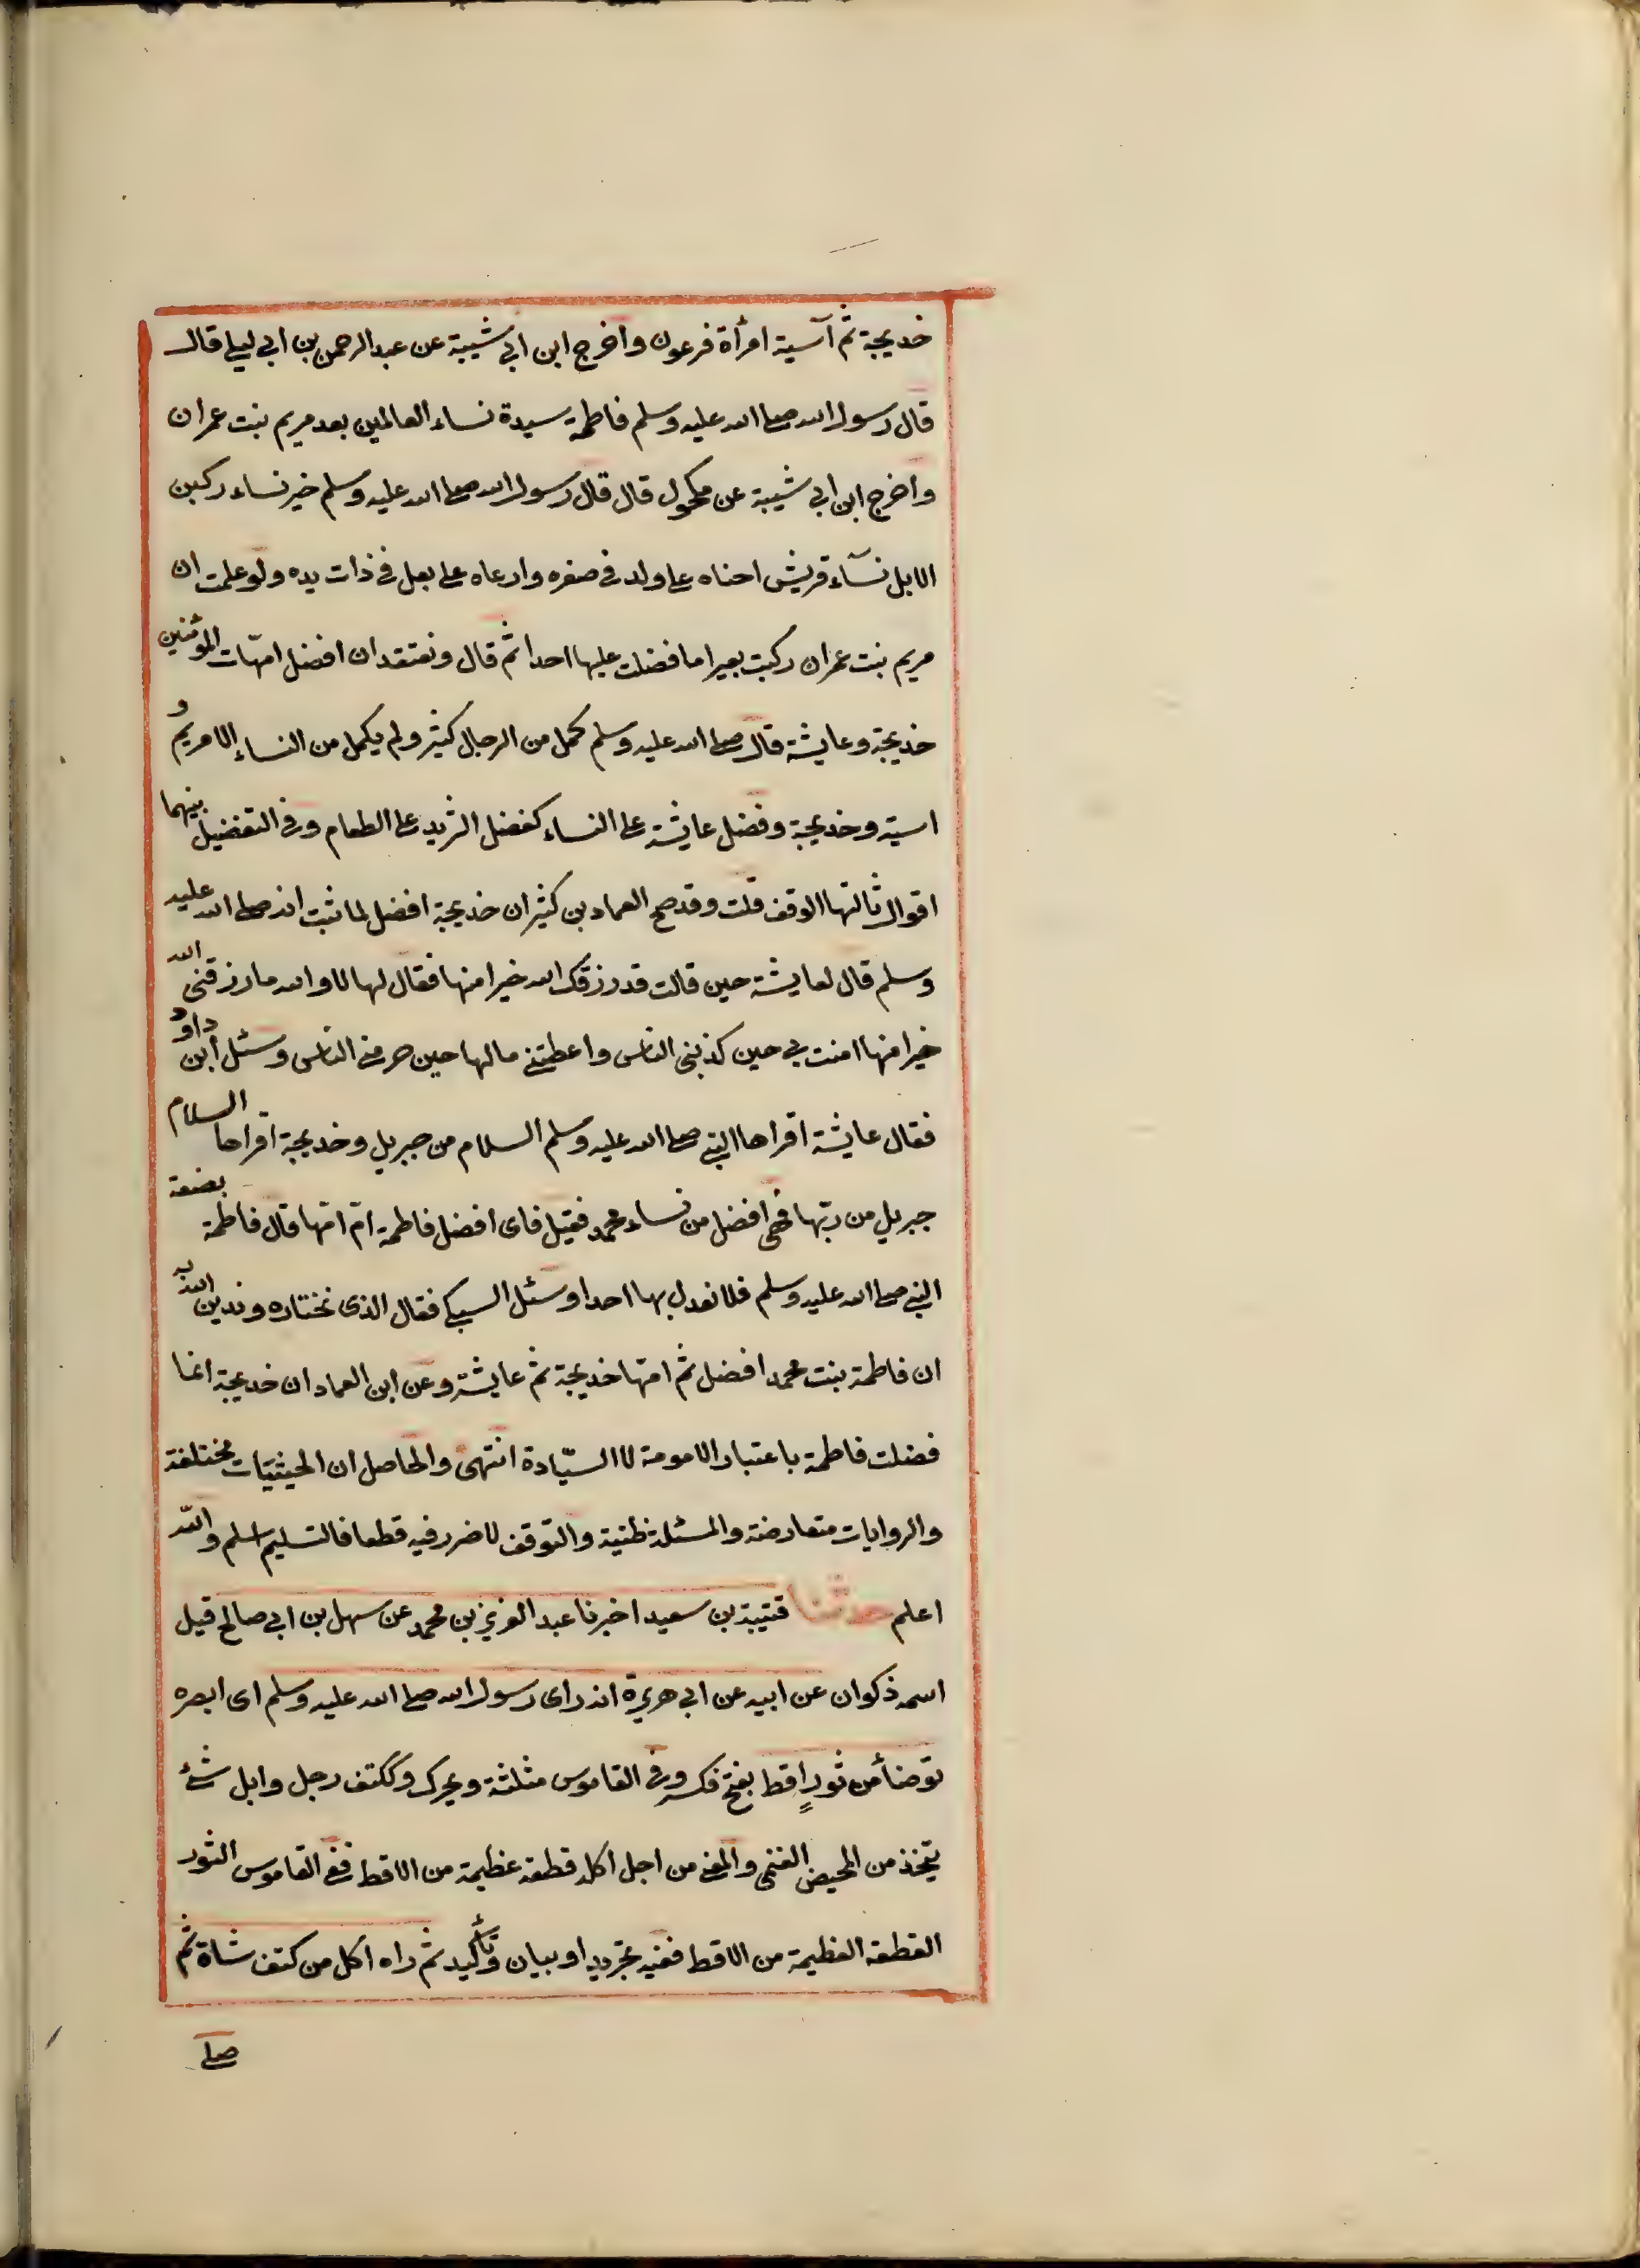 خديجة ثم آسية امرأة فرعون واخرج ابن ابي شيبة عن عبد الرحمن بن ابي ليلى قال
قال رسول الله صلى الله عليه وسلم فاطمة سيدة نساء العالمين بعد مريم بنت عمران
واخرج ابن ابي شيبة عن مكحول قال قال رسول الله صلى الله عليه وسلم خير نساء ركبن
الابل نسآء قريش احناه على ولد في صغره وارعاه على بعل في ذات يده ولو علمت ان
مريم بنت عمران ركبت بعيرا ما فضلت عليها احدا ثم قال ونعتقد ان افضل امهات المؤمنين
خديجة وعايشة قال صلى الله عليه وسلم كمل من الرجال كثير ولم يكمل من النساء الا مريم و
اسية وخديجة وفضل عايشة على النساء كفضل الثريد على الطعام وفي التفضيل بينهما
اقوال ثالثها الوقف قلت وقد صح العماد بن كثير ان خديجة افضل لما ثبت انه صلى الله عليه
وسلم قال لعايشة حين قالت قد رزقك الله خيرا منها فقال لها لا والله ما رزقني الله
خيرا منها امنت بي حين كذبني الناس واعطتني مالها حين حرمني الناس وسئل ابن داود
فقال عايشة اقراها النبي صلى الله عليه وسلم السلام من جبريل وخديجة اقراها السلام
جبريل من ربها فهي افضل من نساء محمد فقيل فاى افضل فاطمة ام امها قال فاطمة بضعة
النبي صلى الله عليه وسلم فلا نعدل بها احدا وسئل السبكي فقال الذى نختاره وندين الله به
ان فاطمة بنت محمد افضل ثم امها خديجة ثم عايشة وعن ابن العماد ان خديجة انما
فضلت فاطمة باعتبار الامومة لا السيادة انتهى والحاصل ان الحيثيات مختلفة
والروايات متعارضة والمسئلة ظنية والتوقف لا ضرر فيه قطعا فالتسليم اسلم والله
اعلم حدثنا قتيبة بن سعيد اخبرنا عبد العزيز بن محمد عن سهل بن ابي صالح قيل
اسمه ذكوان عن ابيه عن ابي هريرة انه راى رسول الله صلى الله عليه وسلم اى ابصره
توضأ من ثورِ اقط بفتح فكسر وفي القاموس مثلثة ويحرك وككتف رجل وابل شئ
يتخذ من المخيض الغنمي والمعنى من اجل اكله قطعة عظيمة من الاقط ففي القاموس الثور
القطعة العظيمة من الاقط ففيه تجريد او بيان وتأكيد ثم راه اكل من كتف شاة ثم
صلى